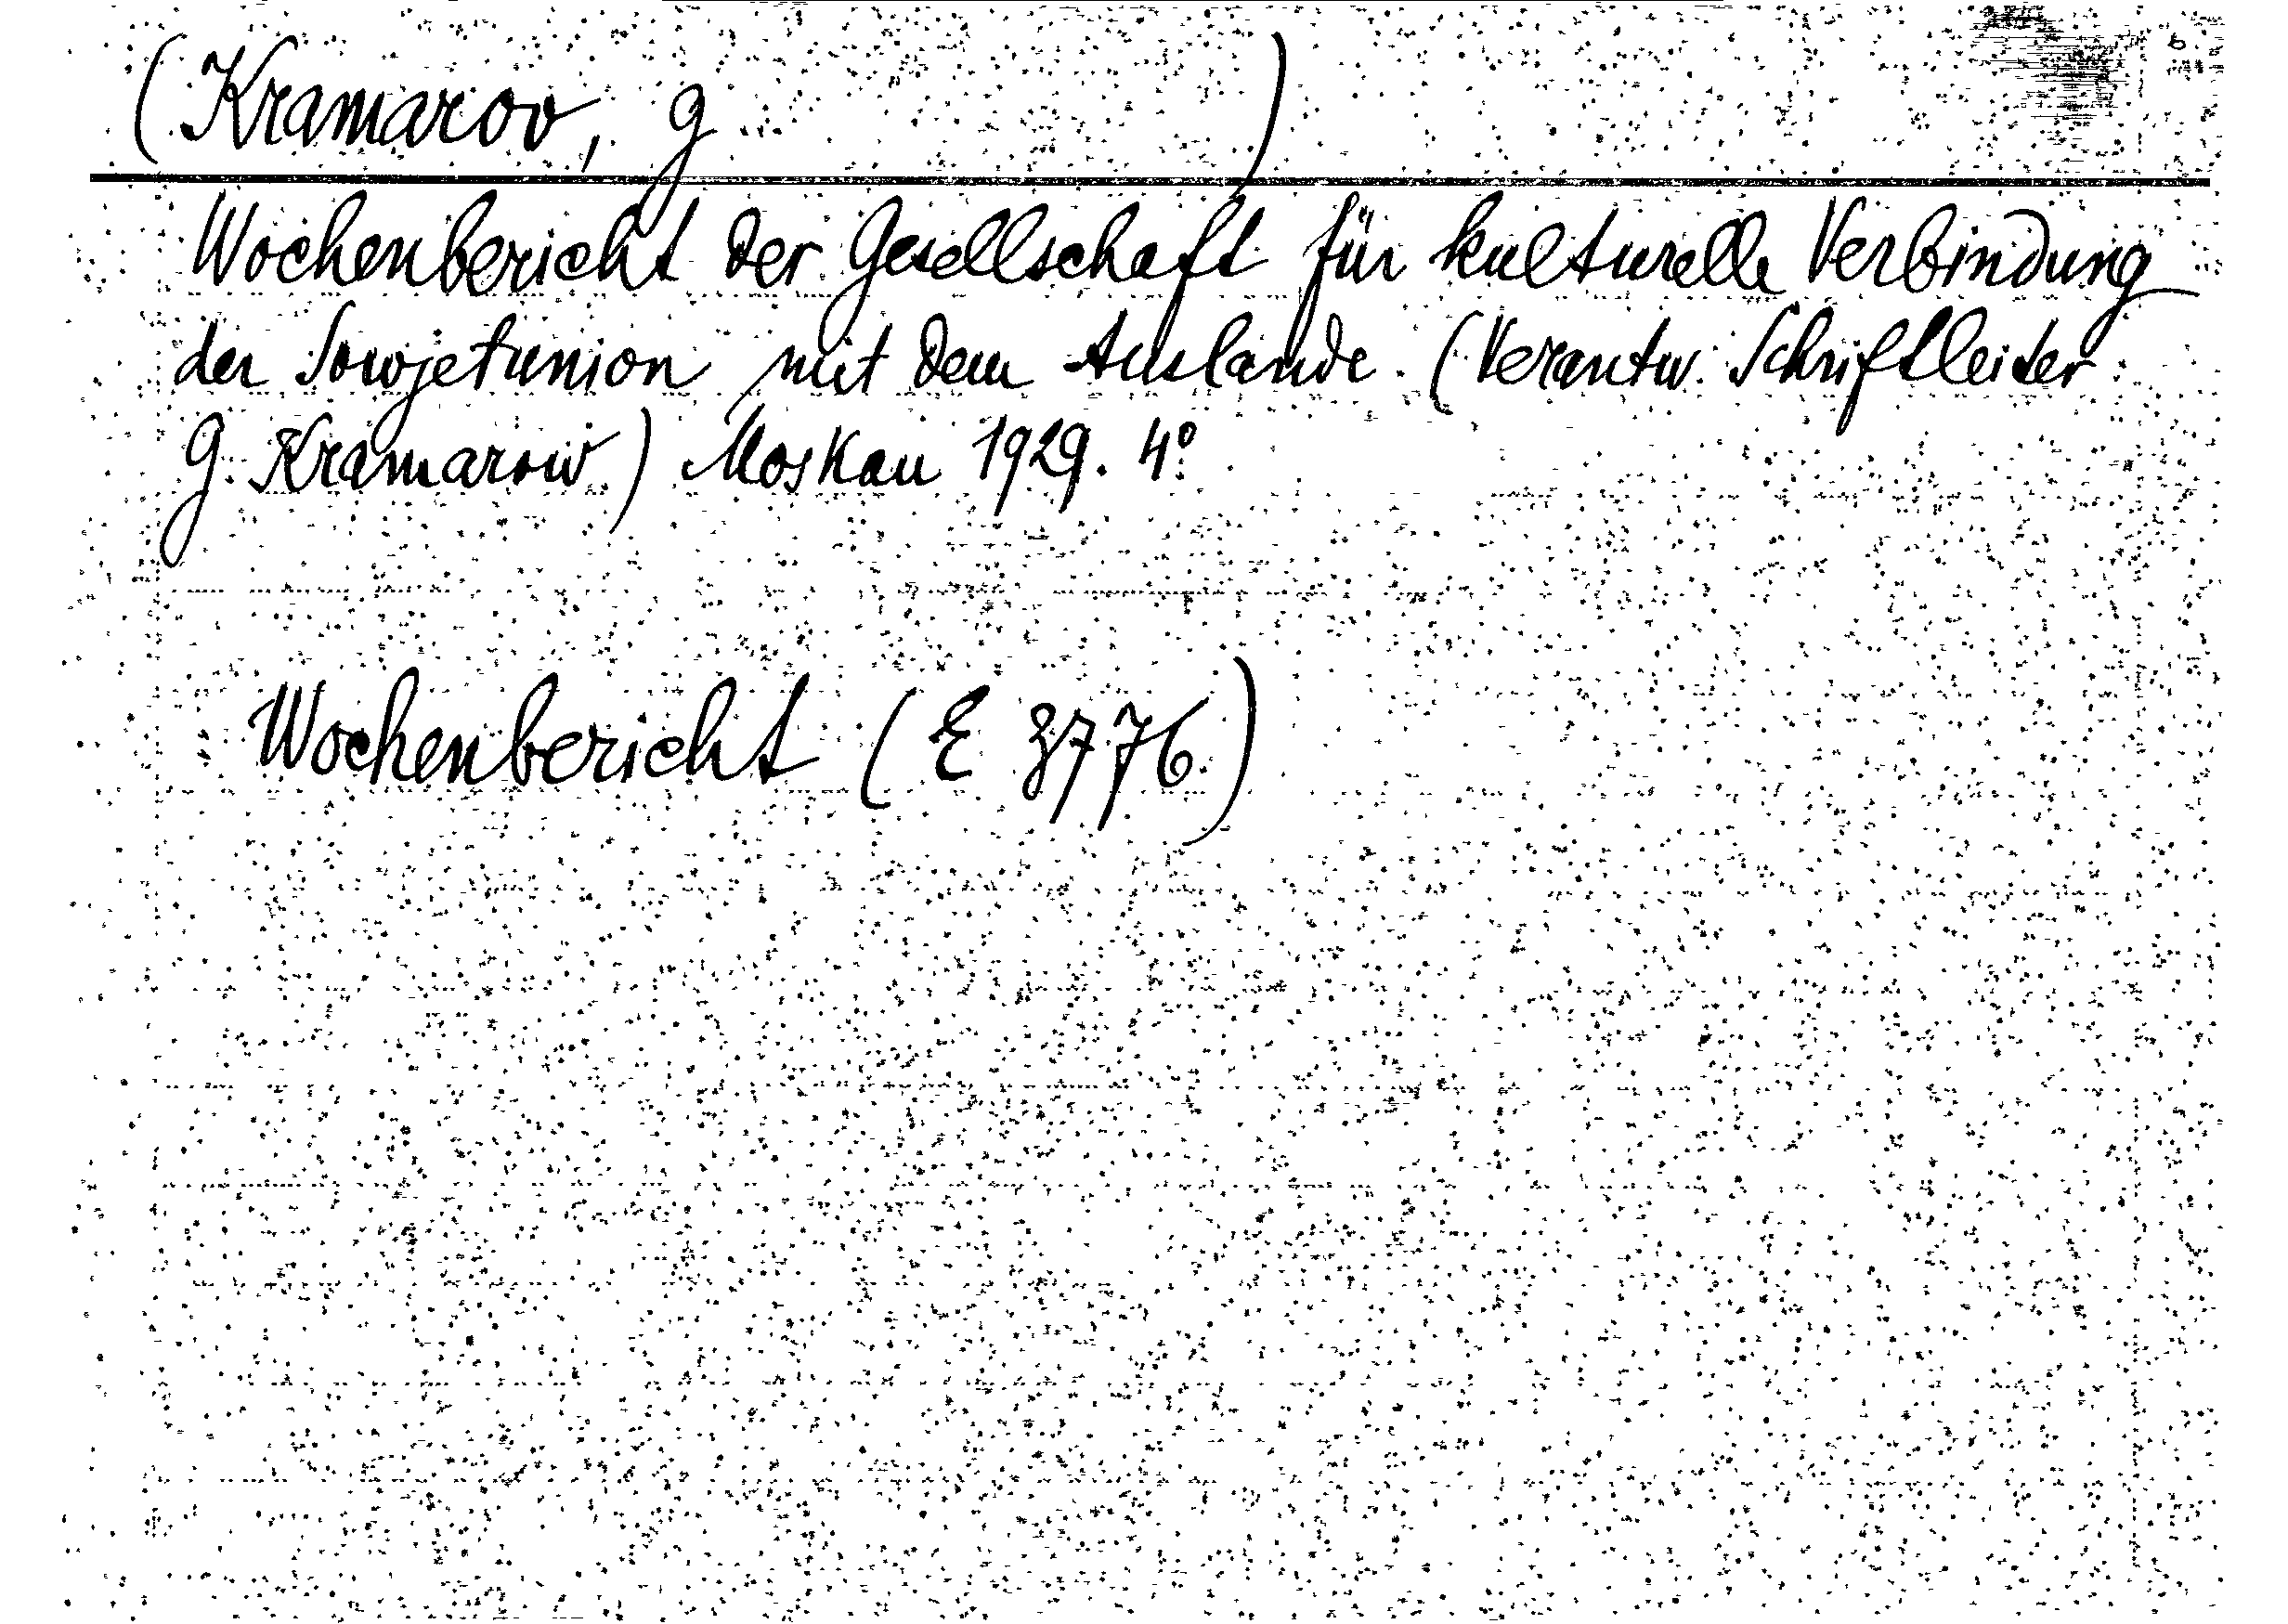 (Kramarov, G )
Wochenbericht der Gesellschaft für kulturelle Verbindung
der Sowjetunion mit dem Auslande. (Verantw. Schriftleiter
G. Kramarow) Moskau 1929. 4°
Wochenbericht (E 3776)